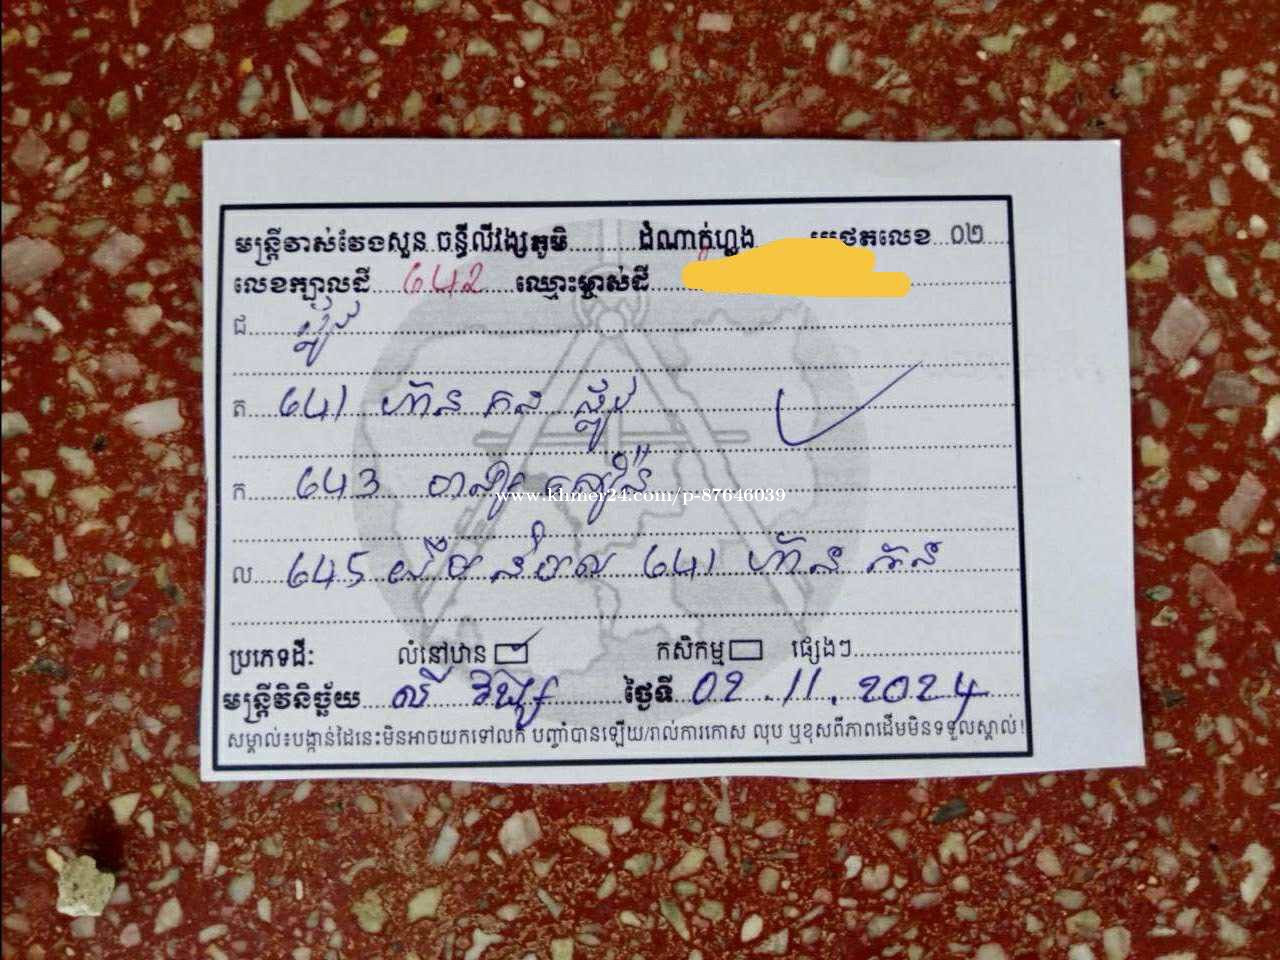 មន្ត្រីវាស់វែង សួន ចន្ធីលីវង្ស ភូមិ.......... ដំណាក់ហ្លួង លេខ 02
លេខក្បាលដី 642 ឈ្មោះម្ចាស់ដី
ជ ផ្លូវ
ត 641 ហ៊ាន ផ្លូវ
ក 643
www.khmer24.com/p-87646039
ល 645 641 ហ៊ាន
ប្រភេទដី: លំនៅឋាន កសិកម្ម ផ្សេងៗ
មន្ត្រីវិនិច្ឆ័យ លី ថ្ងៃទី 02.11.2024
សម្គាល់៖បង្កាន់ដៃនេះមិនអាចយកទៅលក់ បញ្ចាំបានឡើយ/រាល់ការកោស លុប ឬខុសពីភាពដើមមិនទទួលស្គាល់!